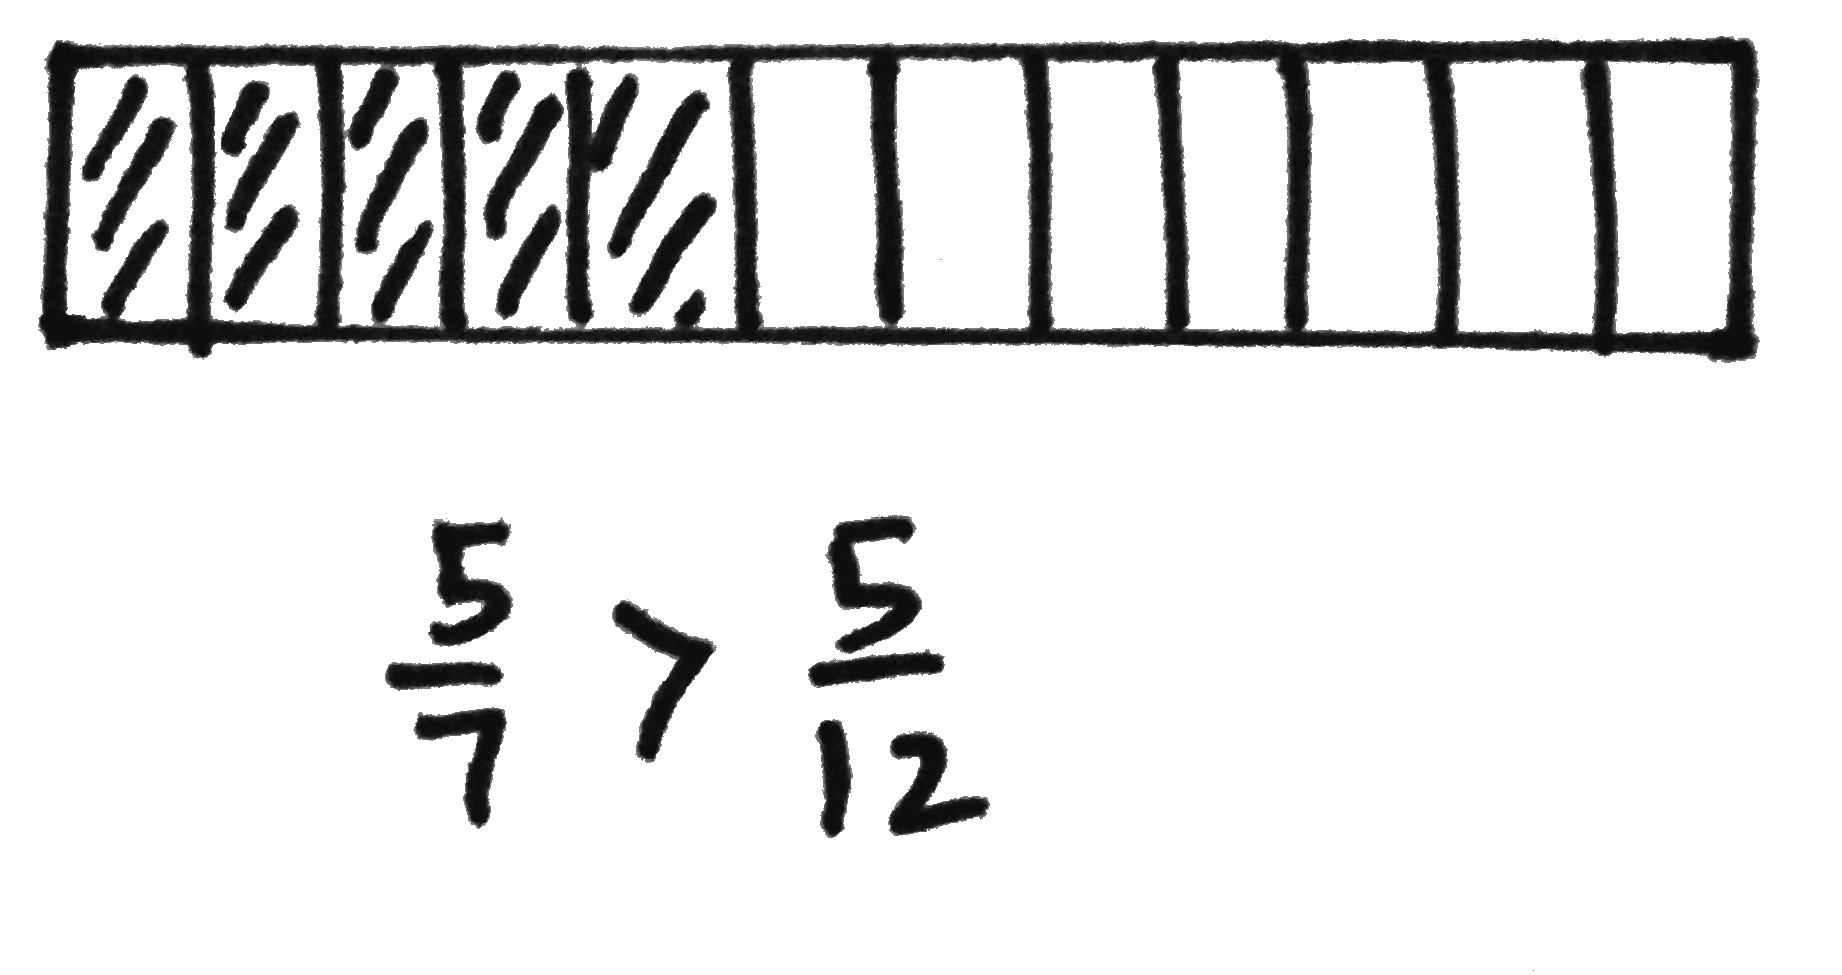 5/7 > 5/12